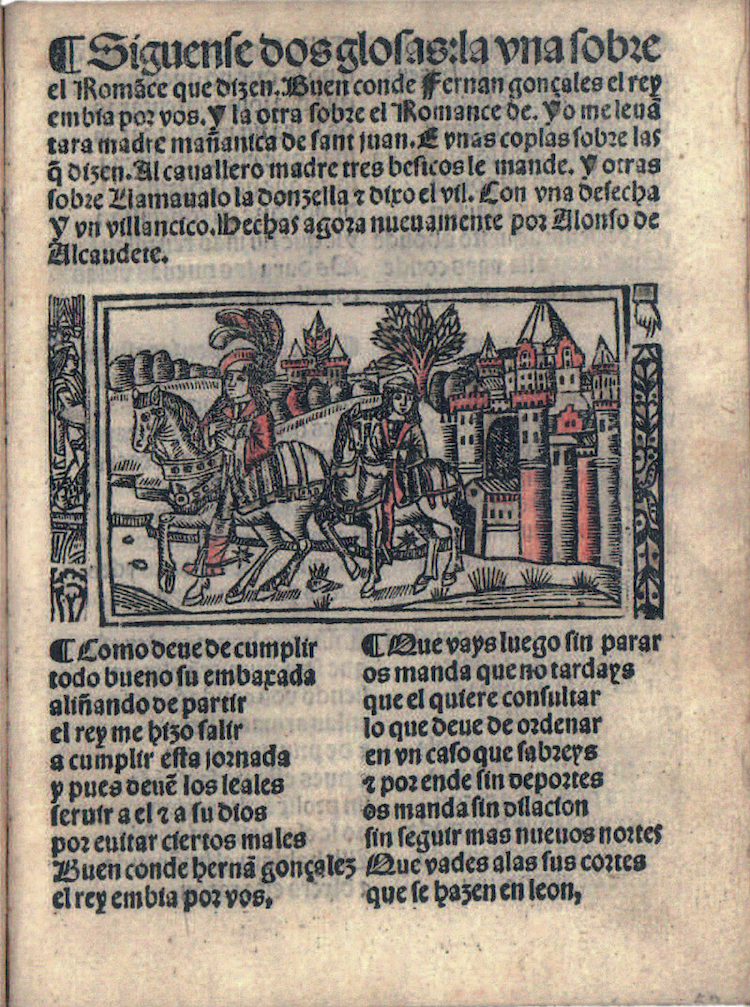 ¶ Siguense dos glosas: la vna sobre
el Romãce que dizen. Buen conde Fernan gonçales el rey
embia por vos. Y la otra sobre el Romance de. Yo me leuã
tara madre mañanica de sant juan. E vnas coplas sobre las
q̃ dizen. Al cauallero madre tres besicos le mande. Y otras
sobre Llamaualo la donzella ⁊ dixo el vil. Con vna desecha
Y vn villancico. Hechas agora nueuamente por Alonso de
Alcaudete.
¶ Como deue de cumplir
todo bueno su embaxada
aliñando de partir
el rey me hizo salir
a cumplir esta jornada
y pues deuẽ los leales
seruir a el ⁊ a su dios
por euitar ciertos males
Buen conde hernã gonçalez
el rey embia por vos,
¶ Que vays luego sin parar
os manda que no tardays
que el quiere consultar
lo que deue de ordenar
en vn caso que sabreys
⁊ por ende sin deportes
os manda sin dilacion
sin seguir mas nueuos nortes
Que vades alas sus cortes
que se hazen en leon,